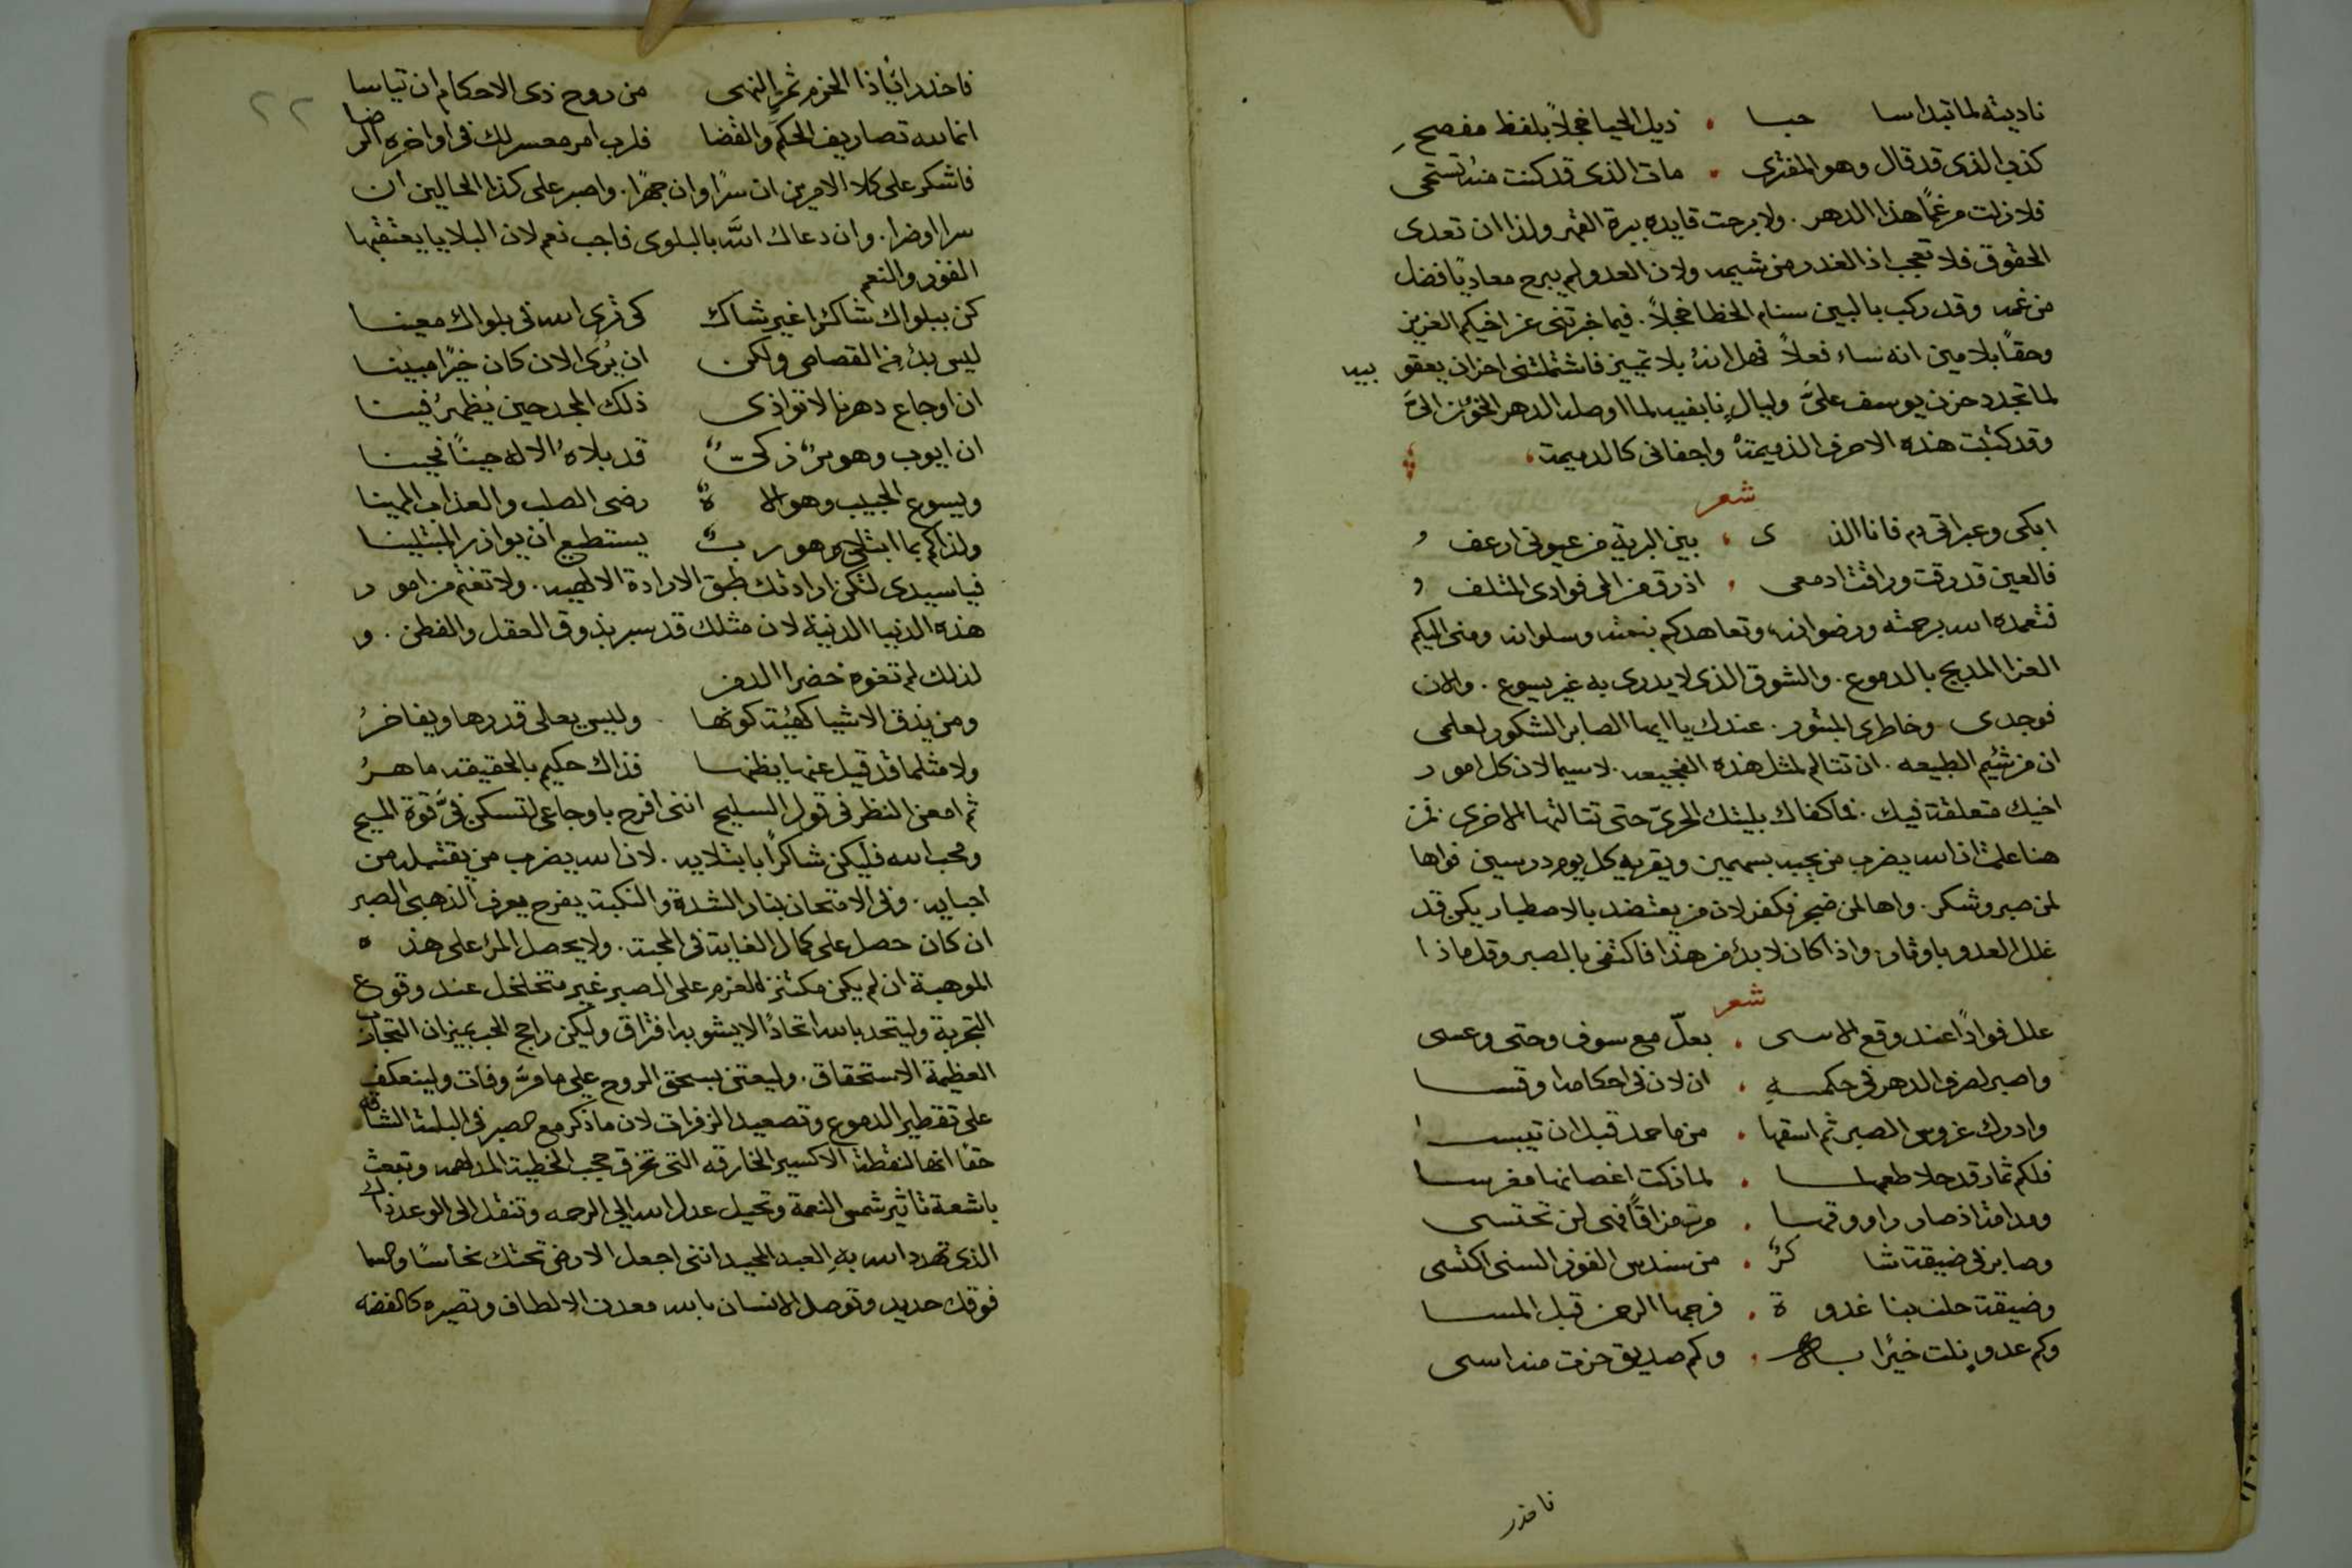 ناديته لما تبدا سا حبا . ذيل الحيا خجلاً بلفظ مفصح
كذب الذي قد قال وهو المفتري . مات الذي قد كنت منه تستحي
فلا زلت مرغماً هذا الدهر . ولا برحت قايده ببرة القهر ولذا ان تعدى
الحقوق فلا تعجب اذ الغدر من شيمه ولان العدو لم يبرح معادياً افضل
من غمه وقد ركب بالبين سنام الخطا خجلاً . فيما خبرتني عن اخيكم العزيز
وحقاً بلا مين انه نساء فعلاً فهل انه بلا تمييز فاشتملتني احزان يعقو بيه
لما تجدد حزن يوسف عليَّ وليالٍ نابغيه لما اوصله الدهر الخؤن اليَّ
وقد كتبت هذه الاحرف الذميمة واجفاني كالديمة
شعر
ابكى وعبراتي دم فانا الذ ى ، بين البرية من عيوني ارعف و
فالعين قد رقت وراقت ادمعي ، اذ رق من المي فوادي المتلف و
فتغمده الله برحمته ورضوانه وتعاهدكم بنعمته وسلوانه ومني اليكم
العزا المدبج بالدموع . والشوق الذي لا يدرى به غير يسوع . والان
فوجدى وخاطرى المبتور . عندك يا ايها الصابر الشكور لعلمي
ان من شيم الطبيعه . ان تتالم لمثل هذه الفجيعه . لاسيما لان كل امور
اخيك متعلقة فيك . فما كفاك بليتك الحرى حتى تتالتها الاخرى . فمن
هنا علمت ان الله يضرب من يحبه بسهمين ويقريه كل يوم درسين فواها
لمن صبر وشكر . واها لمن ضجر فكفر لان من يعتضد بالاصطبار يكن قد
غلل العدو باوثار . واذا كان لا بد من هذا فاكتفي بالصبر وقل ماذا
شعر
علل فواداً عند وقع الاسى . بعلّ مع سوف وحتى وعسى
واصبر لصرف الدهر في حكمه . ان لان في احكامه او قسا
وادرك غروس الصبر ثم اسقها . من ما حمد قبل ان تيبسا
فلكم ثمار قد حلا طعمها . لما زكت اغصانها مغرسا
ومدامة اذ صار راووقها . مر مزاقاً فهي لن تحتسى
وصابر في ضيقة شا كرٌ . من سندس الفوز السني اكتسى
وضيقة حلت بنا غدو ة . فرجها الرحمن قبل المسا
وكم عدو نلت خيرًا به . وكم صديق حزت منه اسى
فاحذر
٢٢
فاحذر اخيّا ذا الحزم ثمر النهى من روح ذي الاحكام ان تياسا
انما لله تصاريف الحكم والقضا فلرب امر معسر لك في اواخره الرضا
فاشكر على كلا الامرين ان سرًا وان جهرًا . واصبر على كذا الحالين ان
سرا او ضرا . وان دعاك الله بالبلوى فاجب نعم لان البلايا يعتقبها
الفوز والنعم
كن ببلواك شاكرًا غير شاك كي ترى الله في بلواك معينا
ليس بد من القصاص ولكن ان يُرى الان كان خيرًا مبينا
ان اوجاع دهرنا لا توازى ذلك المجد حين يُظهرُ فينا
ان ايوب وهو برٌ زكيٌ قد بلاهُ الاله حينًا فحينا
ويسوع الحبيب وهو الا هٌ رضي الصلب والعذاب المهينا
ولذاكم بما ابتلي وهو ربٌ يستطيع ان يوازر المبتلينا
فيا سيدي لتكن ارادتك طبق الارادة الالهيه . ولا تغتم من امور
هذه الدنيا الدنية لان مثلك قد سبر بذوق العقل والفطن . و
لذلك لم تغوه خضرا الدمن
ومن يذق الاشيا كهئية كونها وليس يعلي قدرها ويفاخرُ
ولا مثلما قد قيل عنها يظنها فذاك حكيم بالحقيقه ماهرُ
ثم امعن النظر في قول السليح انني افرح باوجاعي لتسكن فيَّ قوة المسيح
ومحب الله فليكن شاكراً بابتلايه . لان الله يضرب من يقتبله من
احبايه . وفي الامتحان بنار الشدة والنكبة يفرح يعرف الذهبى الصبر
ان كان حصل على كمال الغاية في المحبة . ولا يحصل المرء على هذ ه
الموهبة ان لم يكن مكتنز العزم على الصبر غير متخلخل عند وقوع
التجربة وليتحد بالله اتحادًا لا يشوبه افتراق وليكن راجح الحب بميزان التجارب
العظيمة الاستحقاق . وليعتن بسحق الروح على ما مرَّ وفات ولينعكف
على تقطير الدموع وتصعيد الزفرات لان ما ذكر مع صبر في البلية الشاقه
حقًا انها لنقطة الاكسير الخارقه التي تخرق حجب الخطية المدلهمه وتبعث
باشعة تاثير شمس النعمة وتحيل عدل الله الى الرحمه وتنقل الى الوعد ذاك
الذي تهدد الله بهِ العبد المحيد انني اجعل الارض تحتك نحاسًا والسما
فوقك حديد وتوصل الانسان بالله معدن الالطاف وتصيره كالفضه